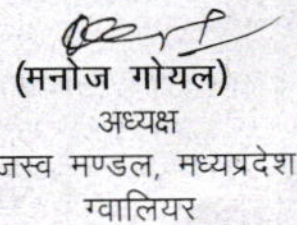 (मनोज गोयल)
अध्यक्ष
जस्व मण्डल, मध्यप्रदेश
ग्वालियर